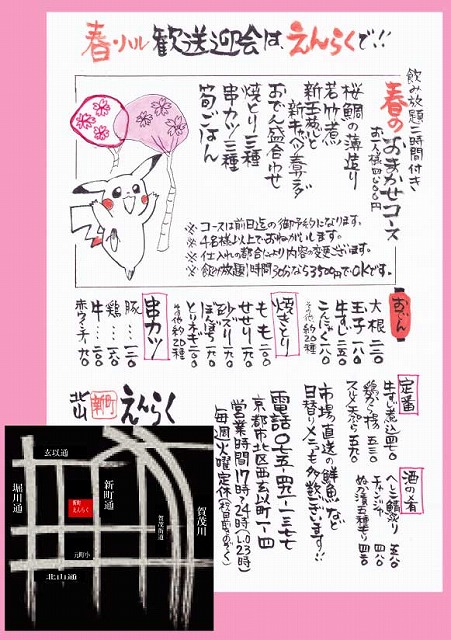 春・ハル 歓送迎会は、えんらくで!!
飲み放題二時間付き
春のおまかせコース
お一人様四〇〇〇円
桜鯛の薄造り
若竹煮
新玉ねぎと
新キャベツの春サラダ
おでん盛合わせ
焼とり三種
串カツ三種
筍ごはん
※コースは前日迄の御予約になります。
※4名様以上でおねがいします。
※仕入れの都合により内容の変更ございます。
※飲み放題1時間30分なら3500円でOKです。
おでん
大根 二二〇
玉子 一八〇
牛すじ 二五〇
こんにゃく 一八〇
その他約20種
焼きとり
もも 二〇〇
せせり 二〇〇
砂ズリ 一九〇
ぼんぼち 一九〇
とりネギ 二〇〇
その他約20種
串カツ
豚 一三〇
鶏 一二〇
牛 二〇〇
赤ウインナー 一九〇
定番
牛すじ煮込 四七〇
鶏から揚 五三〇
スルメ天ぷら 五九〇
酒の肴
へしこ鯖炙り 五八〇
チャンジャ 四八〇
ぬか漬五種もり 四五〇
市場直送の鮮魚など
日替りメニューも多数ございます!!
電話〇七五・四九一・三一七七
京都市北区西玄以町一・四
営業時間17時〜24時(L.O23時)
毎週火曜定休(祝日前日のぞく)
北山 新町 えんらく
玄以通
堀川通
新町通
新町
えんらく
賀茂街道
賀茂川
元町小
北山通